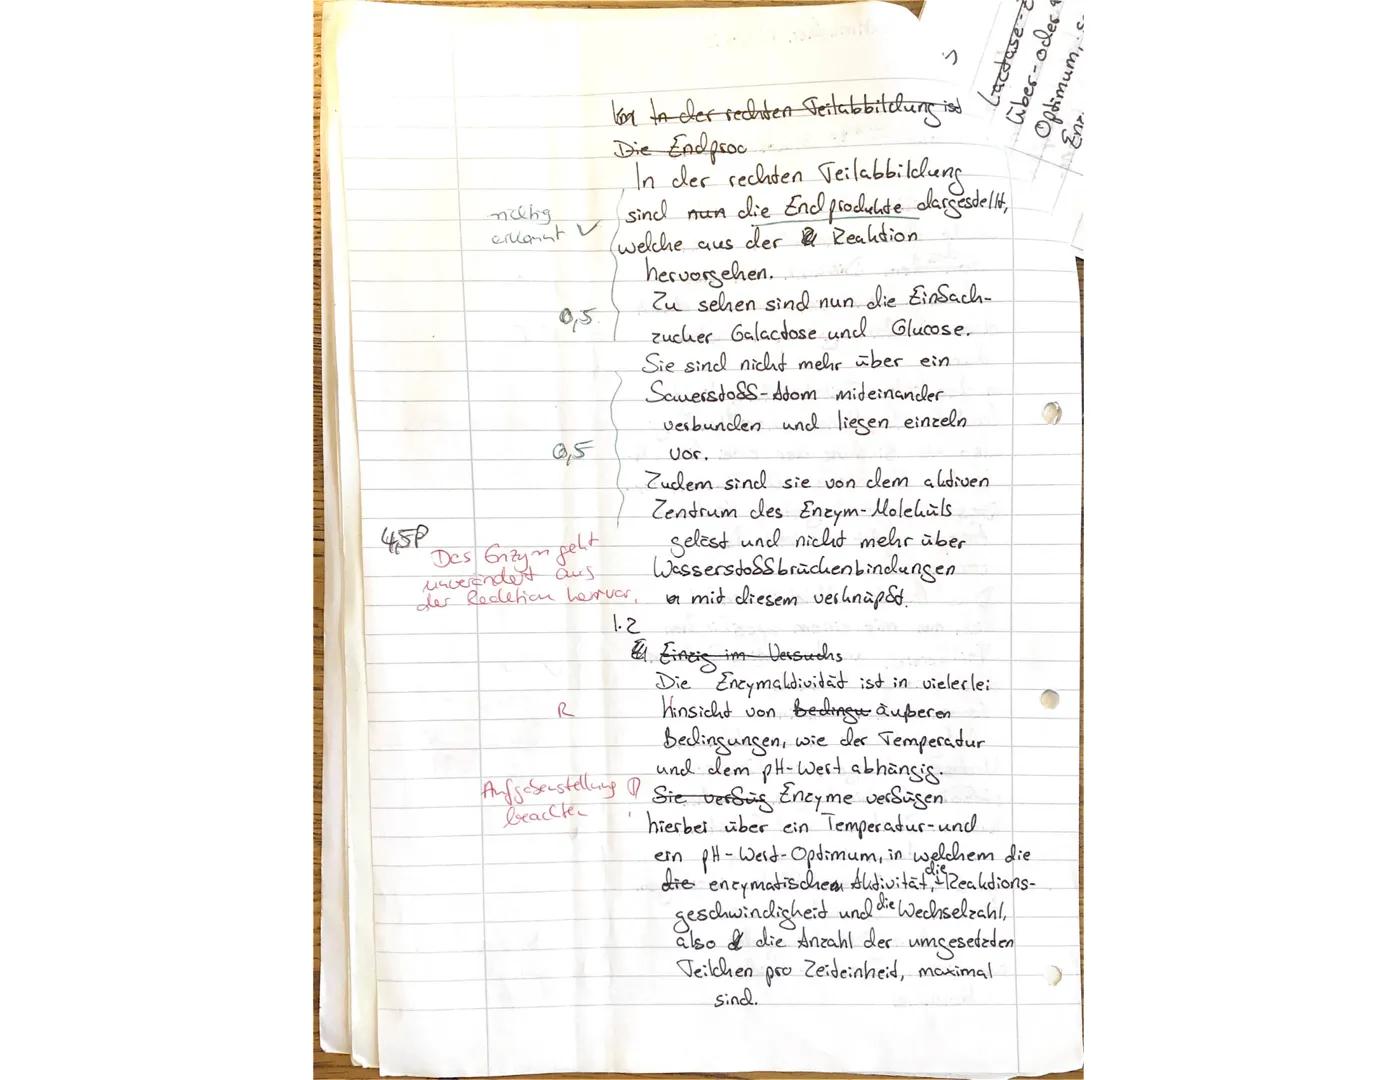 Lactase-
Über- oder
Optimum, s
Enz
In der rechten Teilabbildung ist
Die Endproc
In der rechten Teilabbildung
sind nun die Endprodukte dargestellt,
richtig
erkannt ✓
welche aus der Reaktion
hervorgehen.
Zu sehen sind nun die Einfach-
0,5
zucker Galactose und Glucose.
Sie sind nicht mehr über ein
Sauerstoff-Atom miteinander
verbunden und liegen einzeln
0,5
vor.
Zudem sind sie von dem aktiven
Zentrum des Enzym-Moleküls
4,5P
gelöst und nicht mehr über
Das Enzym geht
unverändert aus
der Reaktion hervor.
Wasserstoffbrückenbindungen
mit diesem verknüpft.
1.2
Einzig im Versuchs
Die Enzymaktivität ist in vielerlei
R
Hinsicht von Bedingu äußeren
Bedingungen, wie der Temperatur
und dem pH-Wert abhängig.
Aufgabenstellung
beachten
!
Sie verfüg Enzyme verfügen
hierbei über ein Temperatur- und
ein pH-Wert-Optimum, in welchem die
die enzymatischen Aktivität, die Reaktions-
geschwindigkeit und die Wechselzahl,
also die Anzahl der umgesetzten
Teilchen pro Zeiteinheit, maximal
sind.